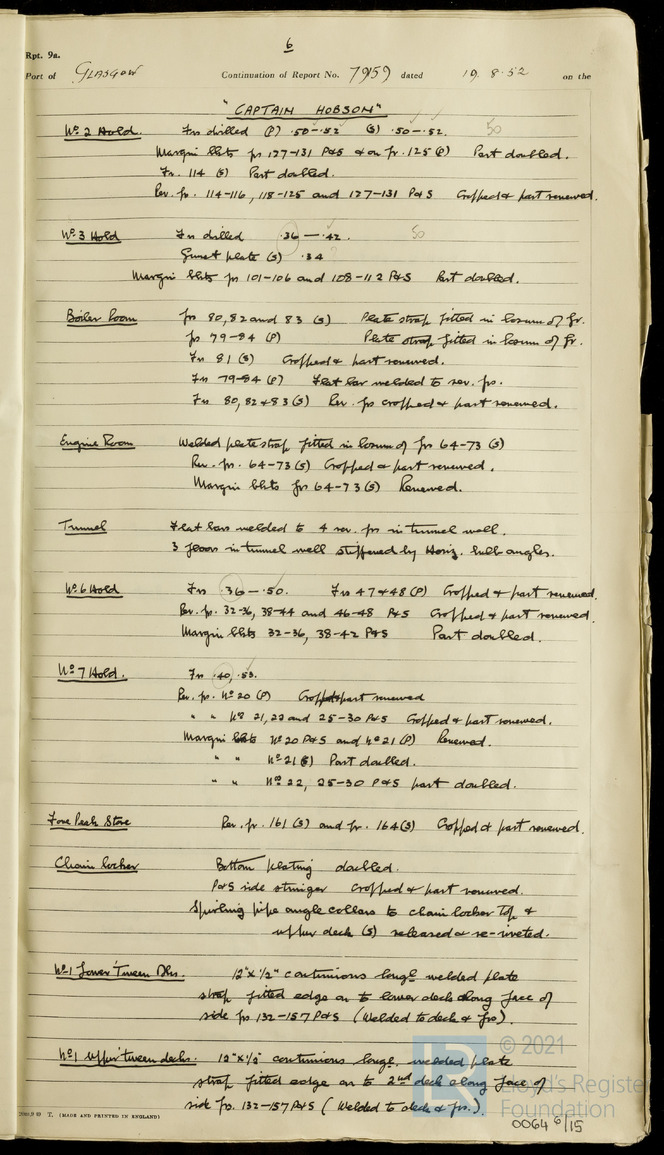 6
Rpt. 9a.
Port of Glasgow Continuation of Report No. 7959 dated 19.8.52 on the
"CAPTAIN HOBSON"
Nº 2 Hold. Frs drilled (P) .50-.52 (S) .50-.52. 50
Margin bkts frs 127-131 P&S & on fr. 125 (P) Part doubled.
Fr. 114 (S) Part doubled.
Rev. fr. 114-116, 118-125 and 127-131 P&S Cropped & part renewed.
Nº 3 Hold Frs drilled .36-.42. 50
Gusset plate (S) .34
Margin bkts frs 101-106 and 108-112 P&S Part doubled.
Boiler Room frs 80, 82 and 83 (S) Plate strap fitted in lieu of fr.
frs 79-84 (P) Plate strap fitted in lieu of fr.
Frs 81 (S) Cropped & part renewed.
Frs 79-84 (P) Flat bar welded to rev. frs.
Frs 80, 82 & 83 (S) Rev. frs cropped & part renewed.
Engine Room Welded plate strap fitted in lieu of frs 64-73 (S)
Rev. frs. 64-73 (S) Cropped & part renewed.
Margin bkts frs 64-73 (S) Renewed.
Tunnel Flat bars welded to 4 rev. frs in tunnel well.
3 floors in tunnel well stiffened by Horiz. bulb angles.
Nº 6 Hold Frs .36-.50. Frs 47 & 48 (P) Cropped & part renewed.
Rev. fr. 32-36, 38-44 and 46-48 P&S Cropped & part renewed.
Margin bkts 32-36, 38-42 P&S Part doubled.
Nº 7 Hold. Frs .40, .53.
Rev. frs. Nº 20 (P) Cropped & part renewed
" " Nºs 21, 22 and 25-30 P&S Cropped & part renewed.
Margin bkts Nº 20 P&S and Nº 21 (P) Renewed.
" " Nº 21 (S) Part doubled.
" " Nºs 22, 25-30 P&S part doubled.
Fore Peak Store Rev. fr. 161 (S) and fr. 164 (S) Cropped & part renewed.
Chain locker Bottom plating doubled.
P&S side stringer Cropped & part renewed.
Spurling pipe angle collars to chain locker top &
upper deck (S) released & re-riveted.
Nº 1 Lower 'Tween Dks. 12"x½" continuous longl. welded plate
strap fitted edge on to lower deck along face of
side frs 132-157 P&S (Welded to deck & frs).
Nº 1 upper 'tween decks. 12"x½" continuous longl. welded plate
strap fitted edge on to 2nd deck along face of
side frs. 132-157 P&S (Welded to deck & frs.).
T. (MADE AND PRINTED IN ENGLAND)
© 2021
Lloyd's Register
Foundation
0064 6/15